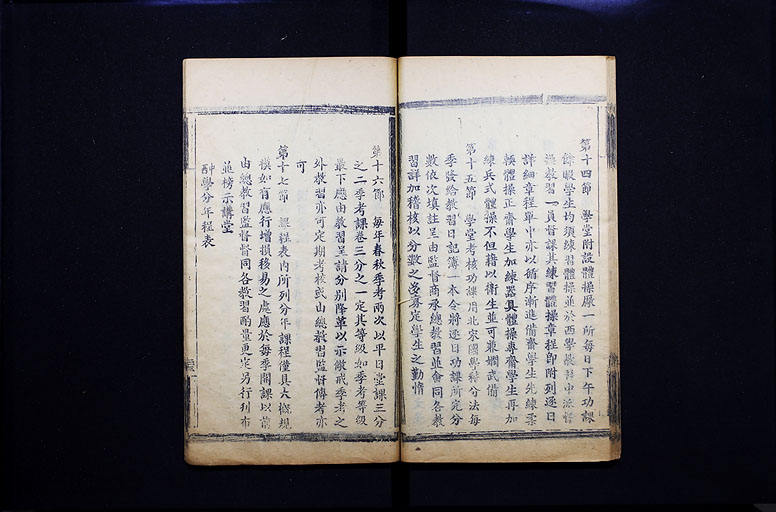 第十四節 學堂附設體操厰一所每日下午功課
餘暇學生均須練習體操並於西學教習中派
教習一員督課其練習體操章程即附列逐日
詳細章程單中亦以循序漸進備齋學生先練柔
輭體操正齋學生加練器具體操專齋學生再加
練兵式體操不但藉以衛生並可兼嫻武備
第十五節 學堂考核功課用北宋國學積分法每
季發給教習日記簿一本令將逐日功課所定分
數依次填註呈由監督商承總教習並會同各教
習詳加稽核以分數之多寡定學生之勤惰
第十六節 每年春秋季考兩次以平日堂課三分
之二季考課卷三分之一定其等級如季考等級
最下應由教習呈請分別降革以示儆戒季考之
外教習亦可定期考核或由總教習監督傳考亦
可
第十七節 課程表內所列分年課程僅具大概規
模如有應行增損移易之處應於每季開課以前
由總教習監督督同各教習酌量更定另行刊布
並榜示講堂
中學分年程表